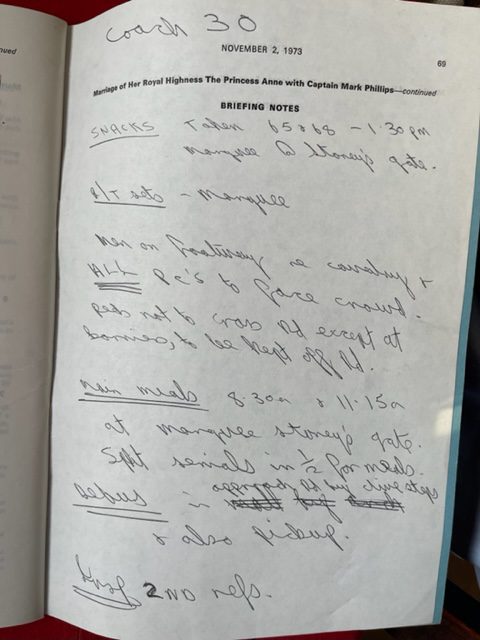 nued
coach 30
NOVEMBER 2, 1973
69
Marriage of Her Royal Highness The Princess Anne with Captain Mark Phillips—continued
BRIEFING NOTES
SNACKS Taken 65 & 68 – 1.30 pm
marquee @ Stoney's gate.
R/T sets – marquee
Men on Footway re cavalry &
ALL PC's to face crowd.
peds not to cross Rd except at
barriers, to be kept off Rd.
main meals 8.30a & 11.15a
at marquee stoney's gate.
Split serials in ½ for meals.
Debus in approach Rd by clive steps
& also pickup.
2ND refs.